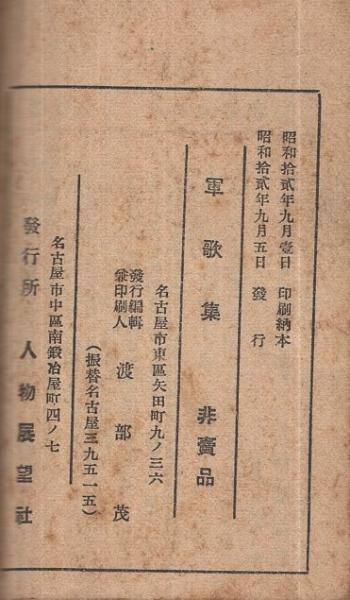 昭和拾貳年九月壹日 印刷納本
昭和拾貳年九月五日 發行
軍歌集 非賣品
名古屋市東區矢田町九ノ三六
發行編輯
兼印刷人 渡部茂
(振替名古屋三九五一五)
名古屋市中區南鍛冶屋町四ノ七
發行所 人物展望社